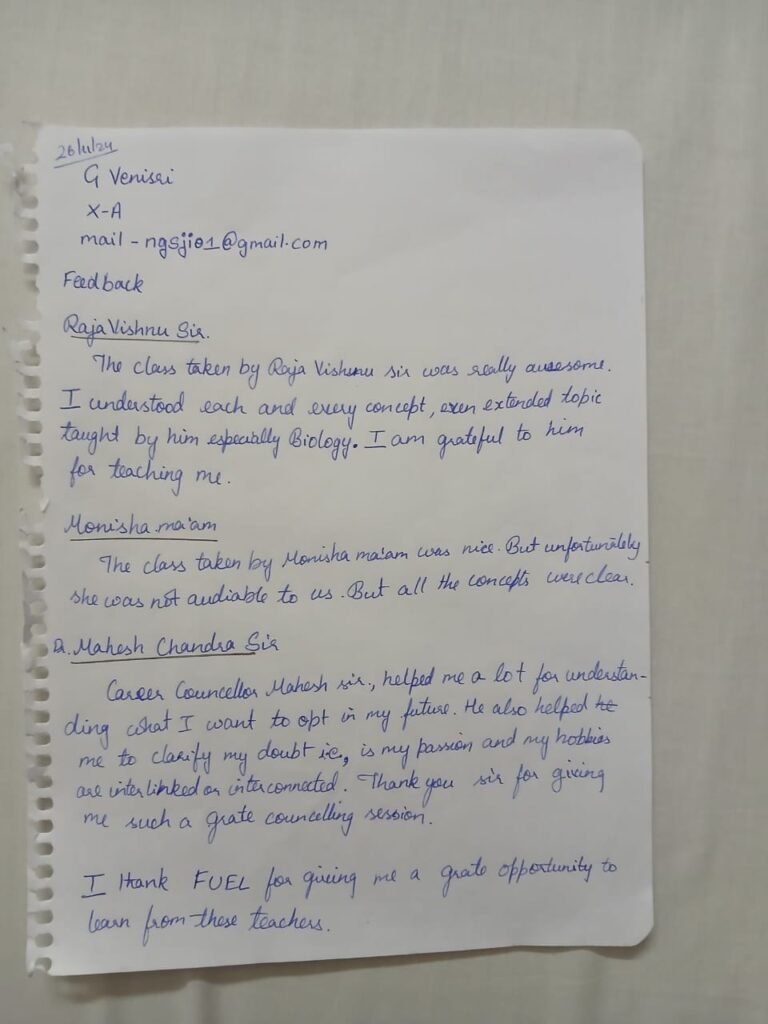 26/11/24
G Venisri
X-A
mail - ngsjio1@gmail.com
Feedback
Raja Vishnu Sir.
The class taken by Raja Vishnu sir was really awesome.
I understood each and every concept, even extended topic
taught by him especially Biology. I am grateful to him
for teaching me.
Monisha ma'am
The class taken by Monisha ma'am was nice. But unfortunately
she was not audiable to us. But all the concepts were clear.
Dr. Mahesh Chandra Sir
Career Councellor Mahesh sir, helped me a lot for understan-
ding what I want to opt in my future. He also helped he
me to clarify my doubt i.e, is my passion and my hobbies
are interlinked or interconnected. Thank you sir for giving
me such a grate councelling session.
I thank FUEL for giving me a grate opportunity to
learn from these teachers.